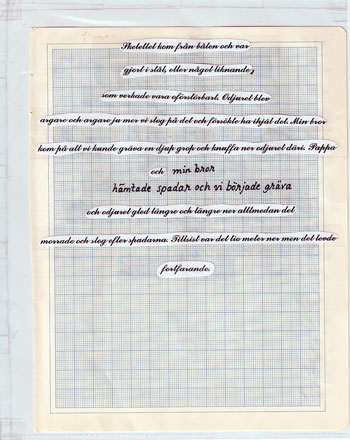 Skelettet kom från båten och var
gjort i stål, eller något liknande,
som verkade vara oförstörbart. Odjuret blev
argare och argare ju mer vi slog på det och försökte ha ihjäl det. Min bror
kom på att vi kunde gräva en djup grop och knuffa ner odjuret däri. Pappa
och min bror
hämtade spadar och vi började gräva
och odjuret gled längre och längre ner alltmedan det
morrade och slog efter spadarna. Tillsist var det tio meter ner men det levde
fortfarande.